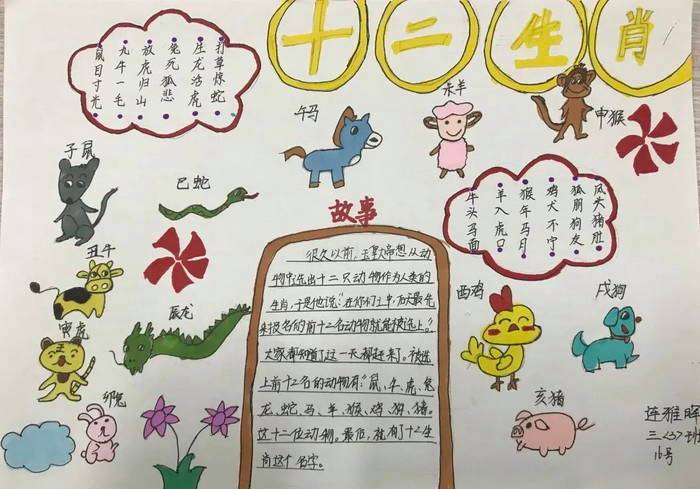 十二生肖
打草惊蛇
生龙活虎
兔死狐悲
放虎归山
九牛一毛
鼠目寸光
午马
未羊
申猴
子鼠
巳蛇
丑牛
辰龙
寅虎
卯兔
故事
很久以前,玉皇大帝想从动
物中选出十二只动物作为人类的
生肖,于是他说:"在你们之中,天最先
来报名的前十二名动物就能被选上。"
大家都知道了这一天都赶来了。被选
上前12名的动物有:"鼠、牛、虎、兔
龙、蛇、马、羊、猴、鸡、狗、猪。
这十二位动物。最后,就有了12生
肖这个名字。
凤头猪肚
狐朋狗友
鸡犬不宁
猴年马月
羊入虎口
牛头马面
酉鸡
戌狗
亥猪
连雅晖
三<3>班
16号